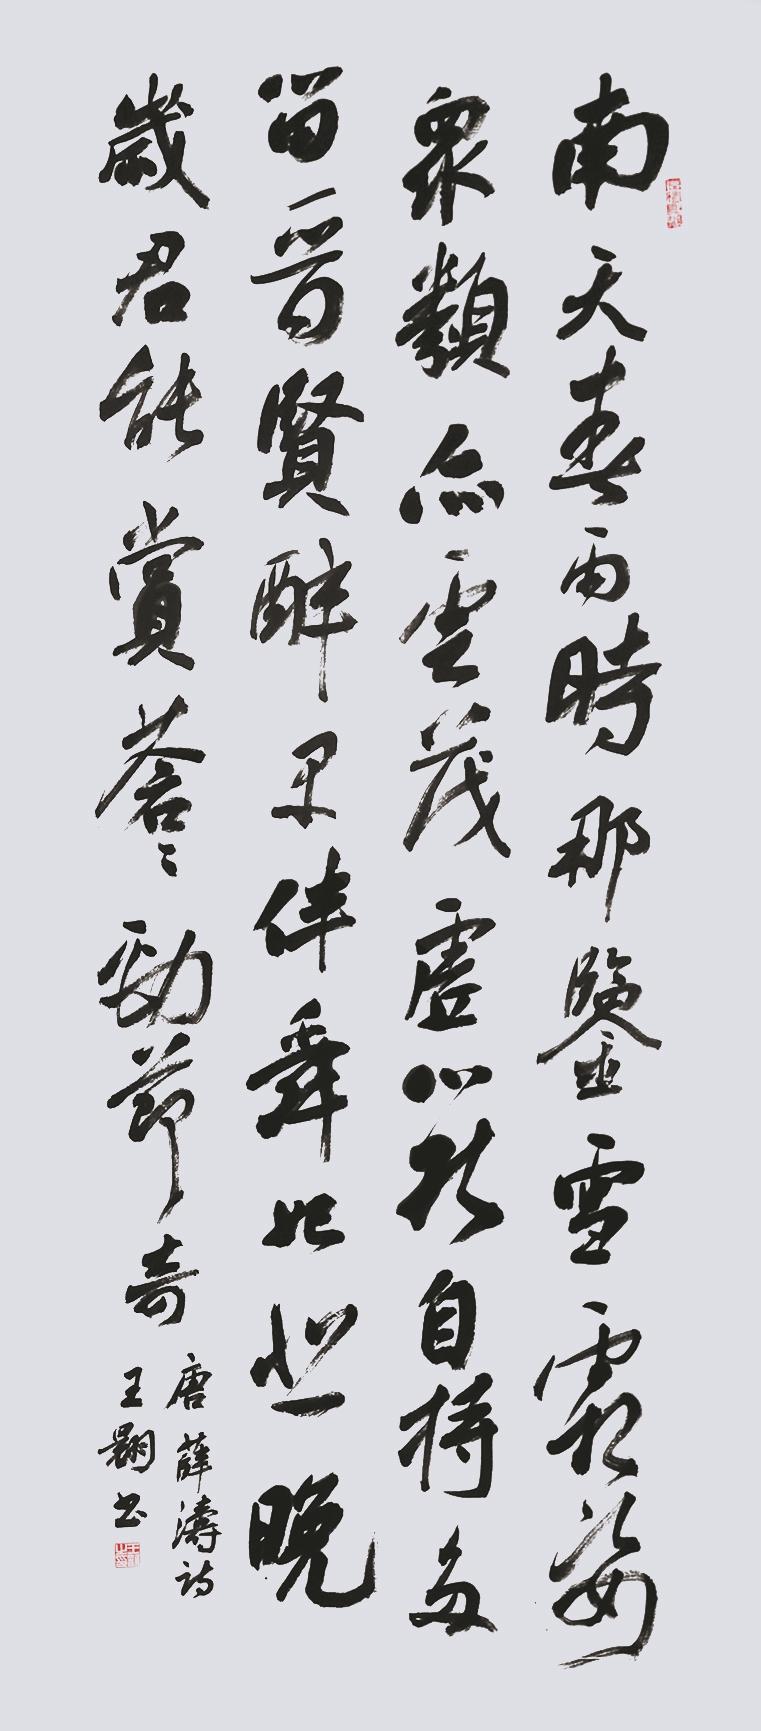 南天春雨時那鑒雪霜姿
眾類亦云茂虛心能自持多
留晉賢醉早伴舜妃悲晚
歲君能賞蒼々勁節奇
唐薛濤詩
王翾書